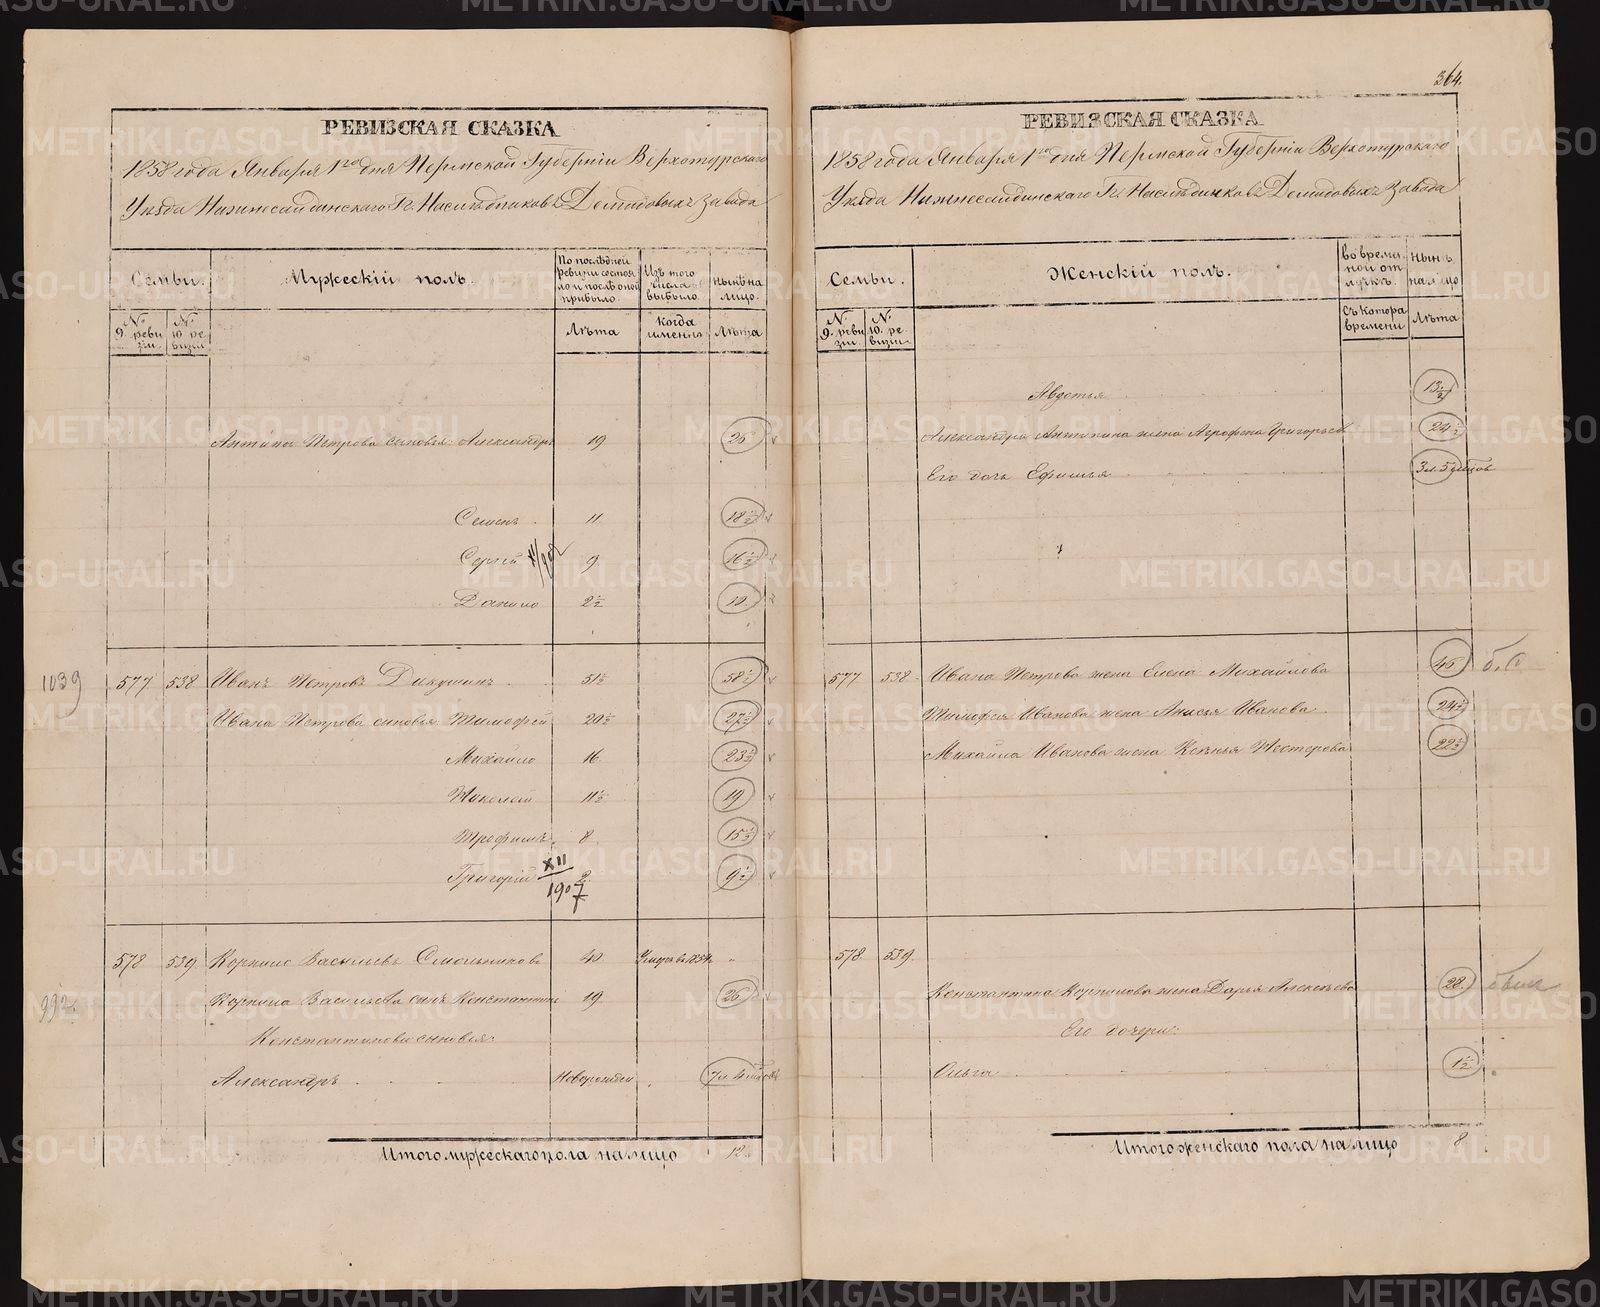 364.
РЕВИЗСКАЯ СКАЗКА
1858 года Января 1го дня Пермской Губерніи Верхотурскаго
Уѣзда Нижнесалдинскаго Гг. Наслѣдниковъ Демидовыхъ Завода
Семьи.
Мужескій полъ.
По послѣдней ревизіи состояло и послѣ оной прибыло.
Изъ того числа выбыло.
Нынѣ на лицо.
№ 9. ревизіи.
№ 10. ревизіи
Лѣта
Когда именно
Лѣта
Антипа Петрова сыновья: Александръ 19 26
Семенъ 11 18½
Сергѣй 9 16½
Данило 2½ 10
1039
577 538 Иванъ Петровъ 51½ 58½
Ивана Петрова сыновья Тимофей 20½ 27½
Михайло 16. 23½
Николай 11½ 19
Трофимъ 8. 15½
Григорій XII/1907 2. 9½
578 539 Корнило Васильевъ Смольниковъ 40 Умеръ въ 1854 "
992.
Корнила Васильева сынъ Константинъ 19 26
Константиновы сыновья:
Александръ Новорожден 7 л 4 мѣсяц
Итого мужескаго пола на лицо 12.
РЕВИЗСКАЯ СКАЗКА
1858 года Января 1го дня Пермской Губерніи Верхотурскаго
Уѣзда Нижнесалдинскаго Гг. Наслѣдниковъ Демидовыхъ Завода
Семьи.
Женскій полъ.
Во временной отлучкѣ.
Нынѣ на лицо
№ 9. ревизіи.
№ 10. ревизіи.
Съ котора времени
Лѣта
Авдотья 13½
Александра Антипина жена Агрофена Григорьев 24½
Его дочь Ефимья 3 л. 5 мѣсяцов
577 538 Ивана Петрова жена Елена Михайлова 46
Тимофея Иванова жена Анисья Иванова 24½
Михайла Иванова жена Ксенья Нестерова 22½
578. 539.
Константина Корнилова жена Дарья Алексѣева 28.
Его дочери:
Ольга 1½
Итого женскаго пола на лицо 8
METRIKI.GASO-URAL.RU